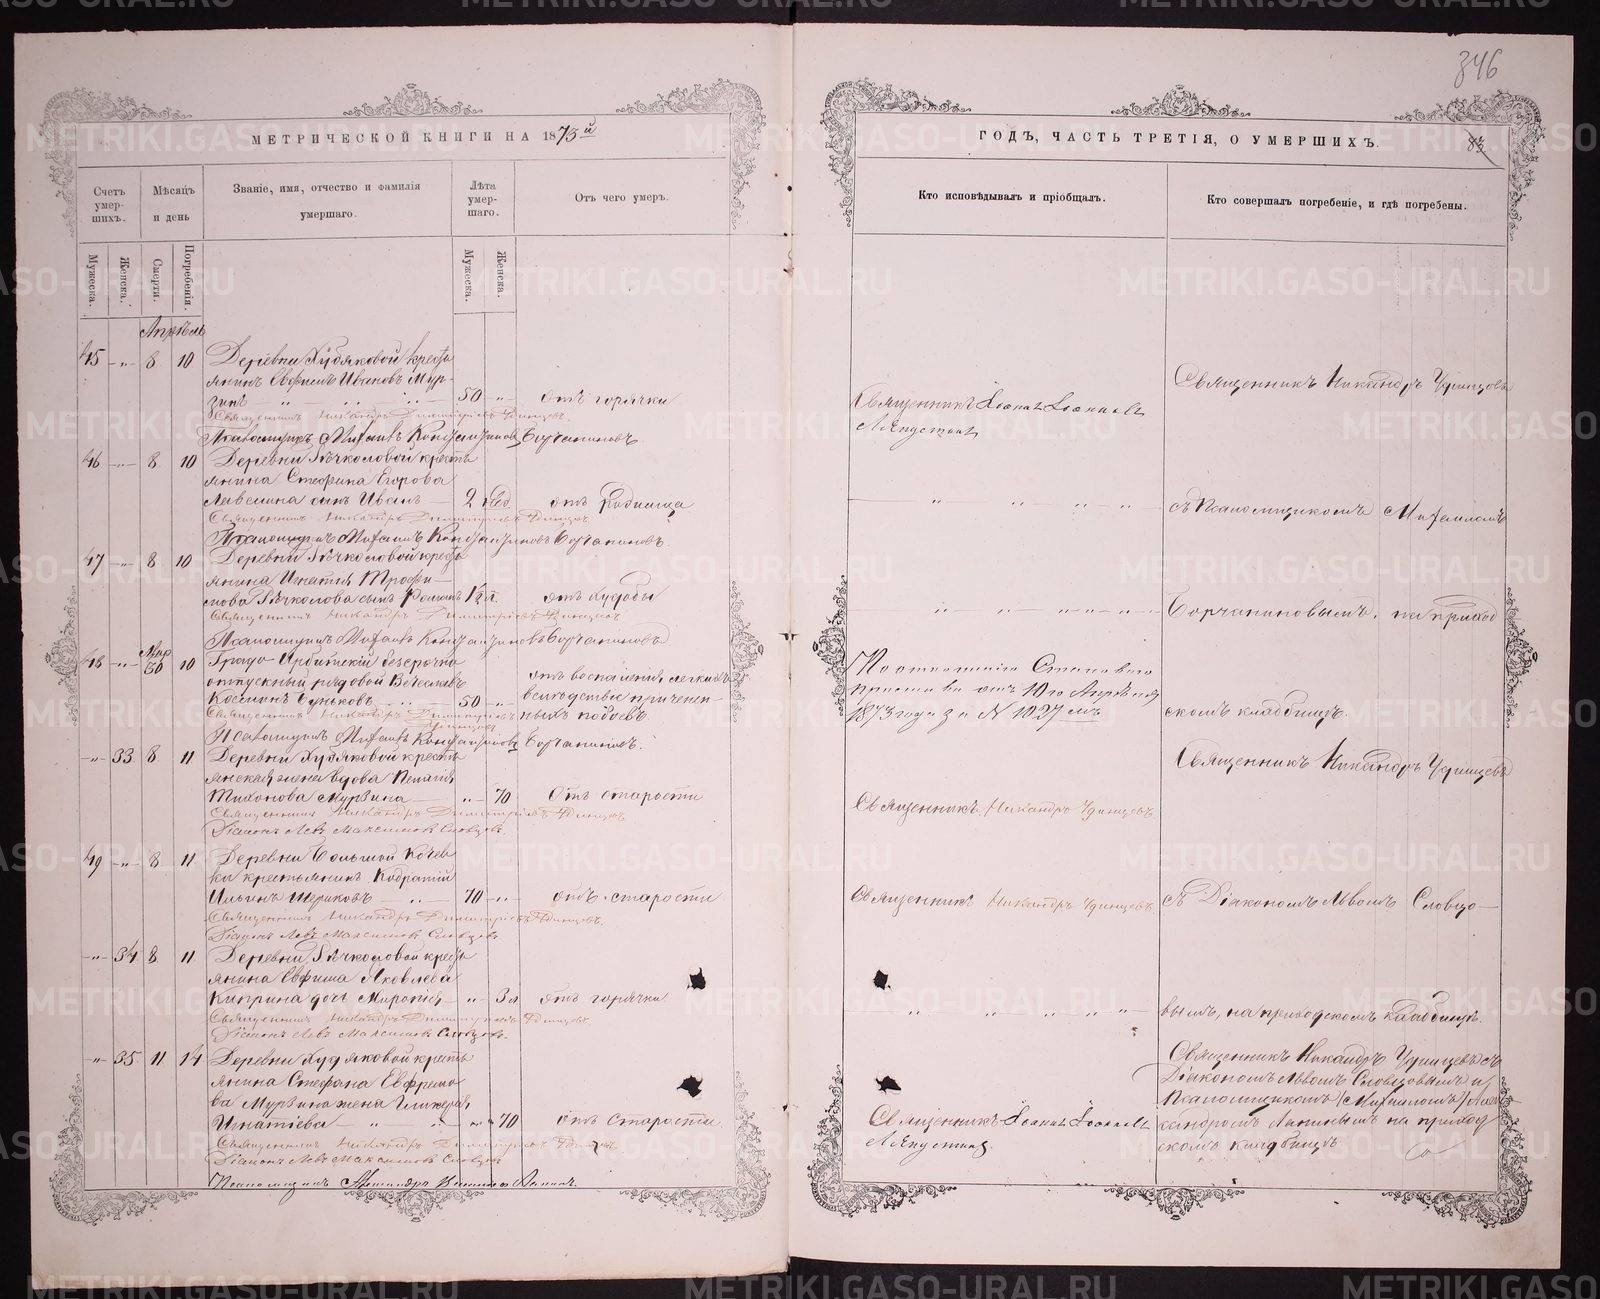 346
МЕТРИЧЕСКОЙ КНИГИ НА 1873й
ГОДЪ, ЧАСТЬ ТРЕТІЯ, О УМЕРШИХЪ.
83
Счетъ умерших.
Мѣсяцъ и день
Званіе, имя, отчество и фамилія умершаго.
Лѣта умершаго.
Отъ чего умеръ.
Кто исповѣдывалъ и пріобщалъ.
Кто совершалъ погребеніе, и гдѣ погребены.
Мужеска.
Женска.
Смерти.
Погребенія.
Мужеска.
Женска.
Апрѣль
45 „ 8 10 Деревни Худяковой крестьянинъ Евфимъ Ивановъ Мурзинъ 50 „ отъ горячки
Священникъ Никандръ Димитріевъ Удинцевъ
Псаломщикъ Михаилъ Константиновъ Борчаниновъ
Священникъ Іоаннъ Іоанновъ
Священникъ Никандръ Удинцевъ
46 „ 8 10 Деревни Рѣчкаловой крестьянина Стефана Егорова
сынъ Иванъ 2 нед. отъ родимца
Священникъ Никандръ Димитріевъ Удинцевъ
Псаломщикъ Михаилъ Константиновъ Борчаниновъ
съ Псаломщикомъ Михаиломъ
47 „ 8 10 Деревни Рѣчкаловой крестьянина Игнатія Трофимова Рѣчкалова сынъ
отъ худобы
Священникъ Никандръ Димитріевъ Удинцевъ
Псаломщикъ Михаилъ Константиновъ Борчаниновъ
Борчаниновымъ, на приход
48 „ 30 10 Градо-Ирбитскій безсрочно
отпускный рядовой Вячеславъ
50 „
отъ воспаленія легкихъ
вслѣдствіе причинен-
ныхъ побоевъ
Священникъ Никандръ Димитріевъ Удинцевъ
Псаломщикъ Михаилъ Константиновъ Борчаниновъ.
По отношенію Становаго
пристава отъ 10го Апрѣля
1873 года за N 1027мъ
скомъ кладбищѣ.
„ 33 8 11 Деревни Худяковой крестьянская жена вдова Пелагія
Тихонова Мурзина „ 70 Отъ старости
Священникъ Никандръ Димитріевъ Удинцевъ
Діаконъ Левъ Максимовъ Словцовъ.
Священникъ Никандръ Удинцевъ
Священникъ Никандръ Удинцевъ
49 „ 8 11 Деревни Большой Кочевки крестьянинъ Кодратій
Ильинъ 70 „ отъ старости
Священникъ Никандръ Димитріевъ Удинцевъ
Діаконъ Левъ Максимовъ Словцовъ
Священникъ Никандръ Удинцевъ
съ Діакономъ Львомъ Словцо-
„ 34 8 11 Деревни Рѣчкаловой крестьянина Евфима Яковлева
Киприна дочь „ 3 отъ горячки
Священникъ Никандръ Димитріевъ Удинцевъ
Діаконъ Левъ Максимовъ Словцовъ.
вымъ, на приходскомъ кладбищѣ.
„ 35 11 14 Деревни Худяковой крестьянина Стефана Ефремова Мурзина жена Гликерія
Игнатіева „ 70 отъ старости
Священникъ Никандръ Димитріевъ Удинцевъ
Діаконъ Левъ Максимовъ Словцовъ
Псаломщикъ Александръ
Священникъ Іоаннъ Іоанновъ
Священникъ Никандръ Удинцевъ съ
Діакономъ Львомъ Словцовымъ и
Псаломщикомъ
Александромъ Лапинымъ на приход
скомъ кладбищѣ
METRIKI.GASO-URAL.RU